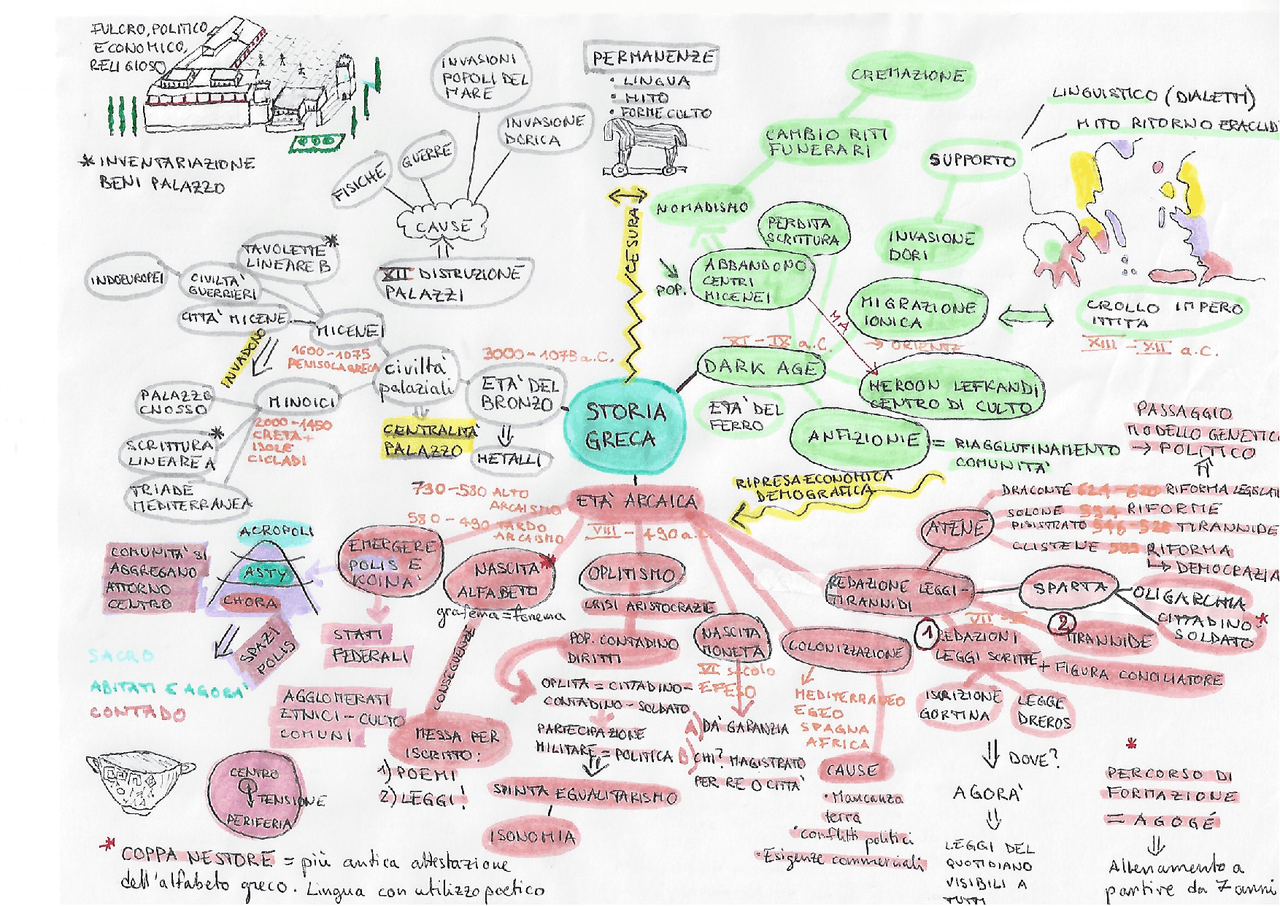 FULCRO, POLITICO
ECONOMICO,
RELIGIOSO
* INVENTARIAZIONE
BENI PALAZZO
INVASIONI
POPOLI DEL
MARE
INVASIONE
DORICA
GUERRE
FISICHE
CAUSE
XII DISTRUZIONE
PALAZZI
TAVOLETTE *
LINEARE B
INDOEUROPEI
CIVILTÀ
GUERRIERI
CITTÀ MICENE
MICENEI
1600-1075
PENISOLA GRECA
INVADONO
PALAZZO
CNOSSO
MINOICI
2000-1450
CRETA +
ISOLE
CICLADI
SCRITTURA *
LINEARE A
TRIADE
MEDITERRANEA
civiltà
palaziali
CENTRALITÀ
PALAZZO
3000-1075 a.C.
ETÀ DEL
BRONZO
METALLI
PERMANENZE
• LINGUA
• MITO
• FORME CULTO
CESURA
STORIA
GRECA
CREMAZIONE
CAMBIO RITI
FUNERARI
NOMADISMO
PERDITA
SCRITTURA
ABBANDONO
CENTRI
MICENEI
POP.
MA
SUPPORTO
LINGUISTICO (DIALETTI)
MITO RITORNO ERACLIDI
INVASIONE
DORI
MIGRAZIONE
IONICA
→ ORIENTE
CROLLO IMPERO
ITTITA
XIII - XII a.C.
XI - IX a.C
DARK AGE
ETÀ DEL
FERRO
HEROON LEFKANDI
CENTRO DI CULTO
ANFIZIONIE = RIAGGLUTINAMENTO
COMUNITÀ
RIPRESA ECONOMICA
DEMOGRAFICA
ETÀ ARCAICA
VIII - 490 a.C
730-580 ALTO
ARCAISMO
580-490 TARDO
ARCAISMO
EMERGERE
POLIS E
KOINÀ
STATI
FEDERALI
AGGLOMERATI
ETNICI - CULTO
COMUNI
ACROPOLI
ASTY
CHORA
COMUNITÀ SI
AGGREGANO
ATTORNO
CENTRO
SPAZI
POLIS
SACRO
ABITATI E AGORÀ
CONTADO
CENTRO
TENSIONE
PERIFERIA
NASCITA *
ALFABETO
grafema = fonema
CONSEGUENZE
MESSA PER
ISCRITTO:
1) POEMI
2) LEGGI!
* COPPA NESTORE = più antica attestazione
dell'alfabeto greco. Lingua con utilizzo poetico
OPLITISMO
CRISI ARISTOCRAZIE
POP. CONTADINO
DIRITTI
OPLITA = CITTADINO-
CONTADINO-SOLDATO
PARTECIPAZIONE
MILITARE = POLITICA
SPINTA EGUALITARISMO
ISONOMIA
NASCITA
MONETA
VI secolo
EFESO
DÀ GARANZIA
CHI? MAGISTRATO
PER RE O CITTÀ
COLONIZZAZIONE
MEDITERRANEO
EGEO
SPAGNA
AFRICA
CAUSE
• Mancanza
terra
• conflitti politici
• Esigenze commerciali
REDAZIONE LEGGI-
TIRANNIDI
ATENE
DRACONTE 624-620 RIFORMA LEGISLATI
SOLONE 594 RIFORME
PISISTRATO 546-528 TIRANNIDE
CLISTENE 508 RIFORMA
↳ DEMOCRAZIA
PASSAGGIO
MODELLO GENETICO
→ POLITICO
SPARTA
OLIGARCHIA
CITTADINO *
SOLDATO
VII
1 REDAZIONI
LEGGI SCRITTE + FIGURA CONCILIATORE
2 TIRANNIDE
ISCRIZIONE
GORTINA
LEGGE
DREROS
DOVE?
AGORÀ
LEGGI DEL
QUOTIDIANO
VISIBILI A
TUTTI
*
PERCORSO DI
FORMAZIONE
= AGOGÉ
Allenamento a
partire da 7 anni